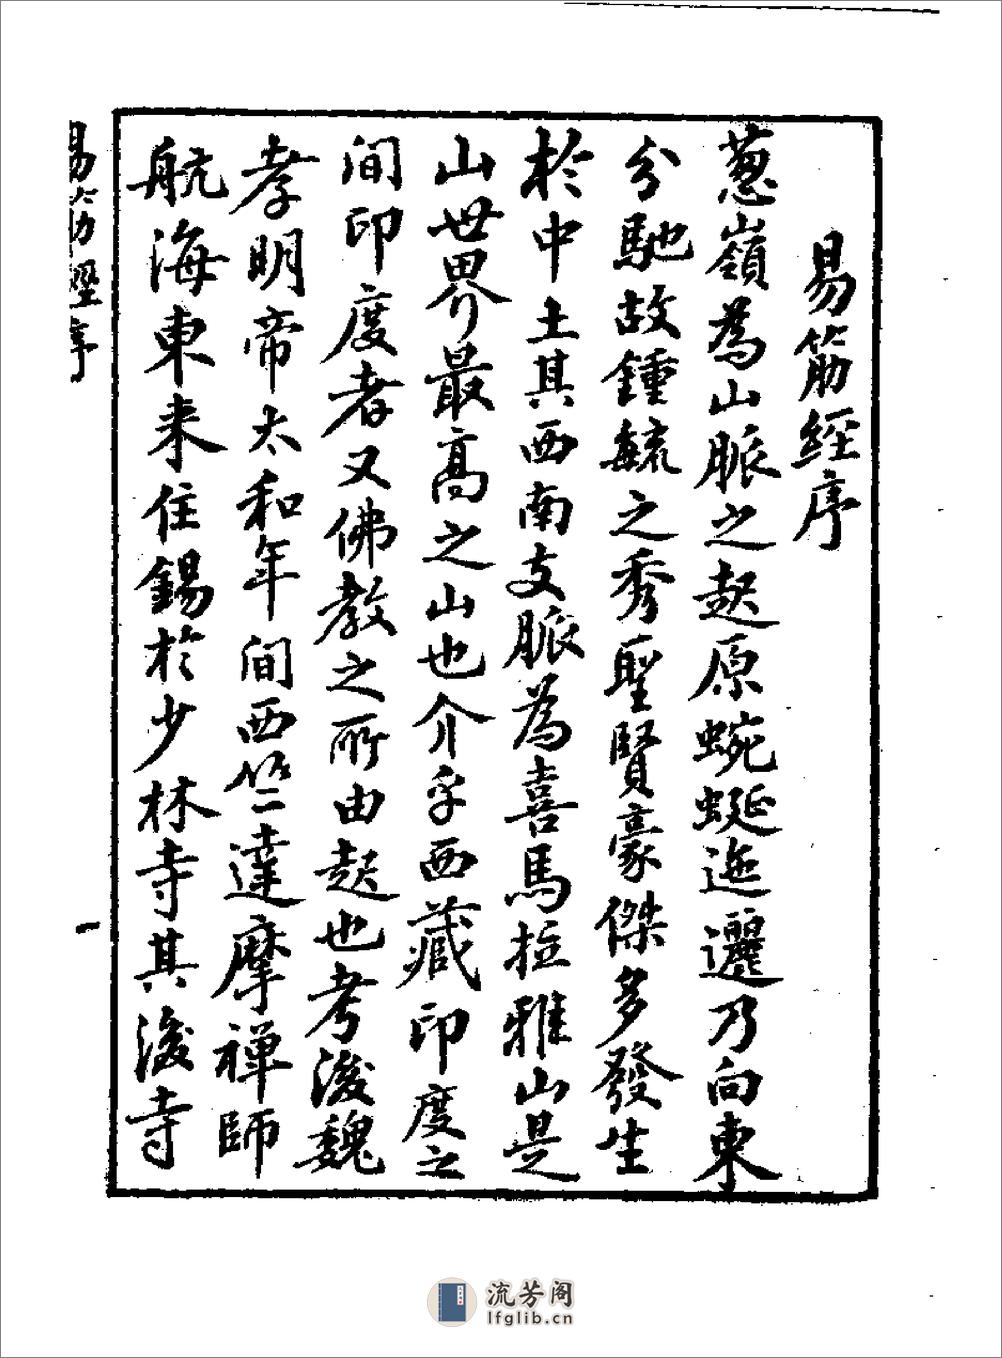 易筋經序
葱嶺為山脈之起原蜿蜒迤邐乃向東
分馳故鍾毓之秀聖賢豪傑多發生
於中土其西南支脈為喜馬拉雅山是
山世界最高之山也介乎西藏印度之
間印度者又佛教之所由起也考後魏
孝明帝太和年間西竺達摩禪師
航海東来住錫於少林寺其後寺
易筋經序
一
流芳阁
lfglib.cn